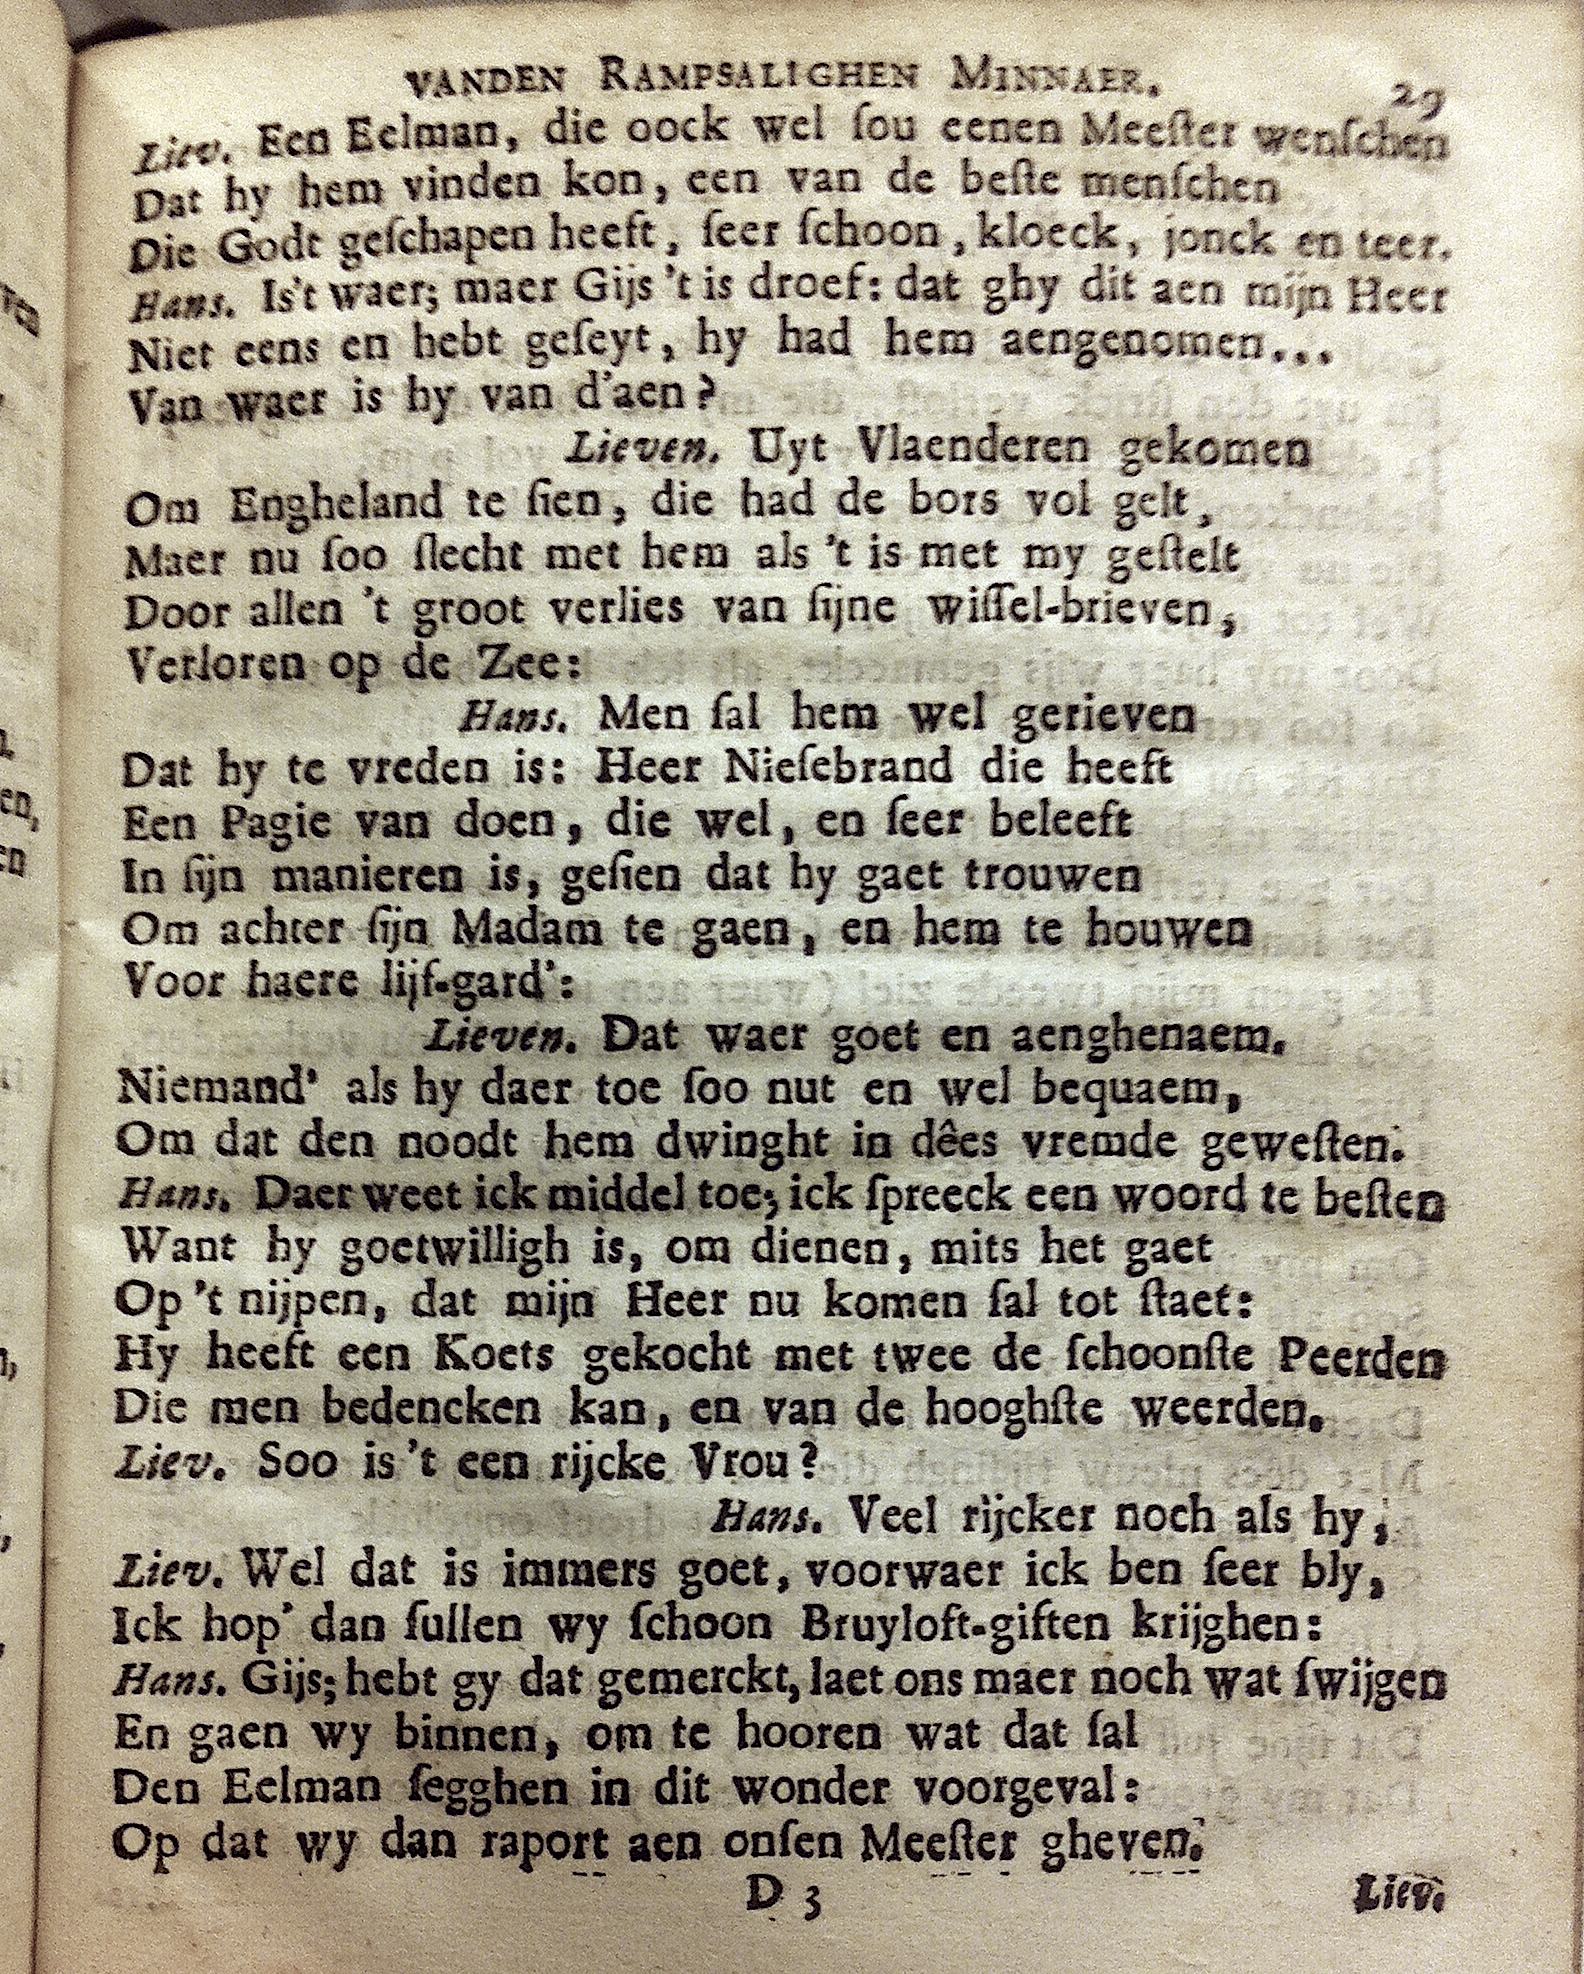 VANDEN RAMPSALIGHEN MINNAER. 29
Liev. Een Eelman, die oock wel ſou eenen Meeſter wenſchen
Dat hy hem vinden kon, een van de beſte menſchen
Die Godt geſchapen heeft, ſeer ſchoon, kloeck, jonck en teer.
Hans. Is't waer; maer Gijs 't is droef: dat ghy dit aen mijn Heer
Niet eens en hebt geſeyt, hy had hem aengenomen...
Van waer is hy van d'aen?
Lieven. Uyt Vlaenderen gekomen
Om Engheland te ſien, die had de bors vol gelt,
Maer nu ſoo ſlecht met hem als 't is met my geſtelt
Door allen 't groot verlies van ſijne wiſſel-brieven,
Verloren op de Zee:
Hans. Men ſal hem wel gerieven
Dat hy te vreden is: Heer Nieſebrand die heeft
Een Pagie van doen, die wel, en ſeer beleeft
In ſijn manieren is, geſien dat hy gaet trouwen
Om achter ſijn Madam te gaen, en hem te houwen
Voor haere lijf-gard':
Lieven. Dat waer goet en aenghenaem.
Niemand' als hy daer toe ſoo nut en wel bequaem,
Om dat den noodt hem dwinght in dêes vremde geweſten.
Hans. Daer weet ick middel toe; ick ſpreeck een woord te beſten
Want hy goetwilligh is, om dienen, mits het gaet
Op 't nijpen, dat mijn Heer nu komen ſal tot ſtaet:
Hy heeft een Koets gekocht met twee de ſchoonſte Peerden
Die men bedencken kan, en van de hooghſte weerden.
Liev. Soo is 't een rijcke Vrou?
Hans. Veel rijcker noch als hy;
Liev. Wel dat is immers goet, voorwaer ick ben ſeer bly,
Ick hop' dan ſullen wy ſchoon Bruyloft-giften krijghen:
Hans. Gijs; hebt gy dat gemerckt, laet ons maer noch wat ſwijgen
En gaen wy binnen, om te hooren wat dat ſal
Den Eelman ſegghen in dit wonder voorgeval:
Op dat wy dan raport aen onſen Meeſter gheven.
D 3 Liev.